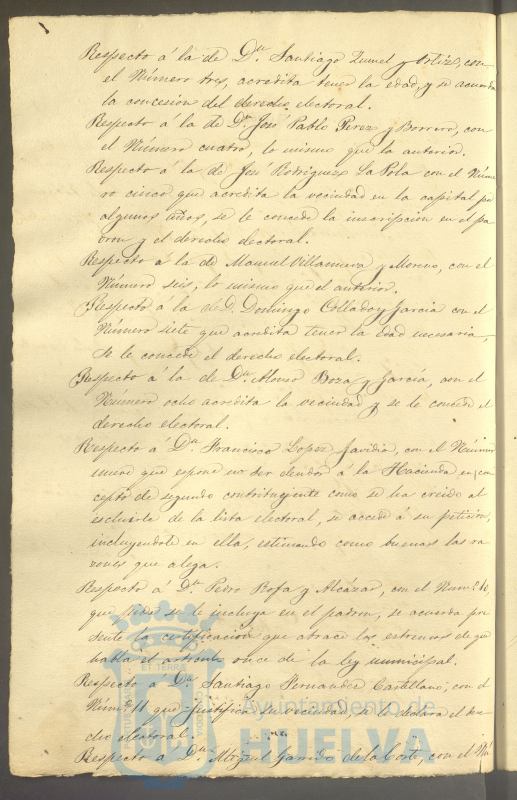 Respecto á la de Dn Santiago Zumel y Ortiz, con
el Número tres, acredita tener la edad, y se acuerda
la concesion del derecho electoral.
Respecto á la de Dn José Pablo Perez y Borrero, con
el Número cuatro, lo mismo que la anterior.
Respecto á la de José Rodriguez La Pola con el Núme
ro cinco que acredita la vecindad en la capital po
algunos años, se le concede la inscripción en el pa
dron y el derecho electoral.
Respecto á la de Manuel Villanueva y Moreno, con el
Número seis, lo mismo que el anterior.
Respecto á la de D. Domingo Collado y Garcia con el
Número siete que acredita tener la edad necesaria,
se le concede el derecho electoral.
Respecto á la de Dn Alonso Boza y García, con el
Número ocho acredita la vecindad y se le concede el
derecho electoral.
Respecto á Dn Francisco Lopez, con el Número
nueve que espone no ser deudor á la Hacienda en con
cepto de segundo contribuyente como se ha creido al
escluirle de la lista electoral, se accede á su peticion,
incluyendole en ella, estimando como buenas las ra
zones que alega.
Respecto á Dn Pedro Rofa y Alcázar, con el Numº 10,
que pide se le incluya en el padron, se acuerda pre
sente la certificacion que abrace los estremos de que
habla el articulo once de la ley municipal.
Respecto á Dn Santiago Fernandez Castellano, con el
Númº 11 que justifica su vecindad, se le declara el dere
cho electoral.
Respecto á Dn Miguel Garrido de la Corte, con el Nú
Ayuntamiento de
HUELVA